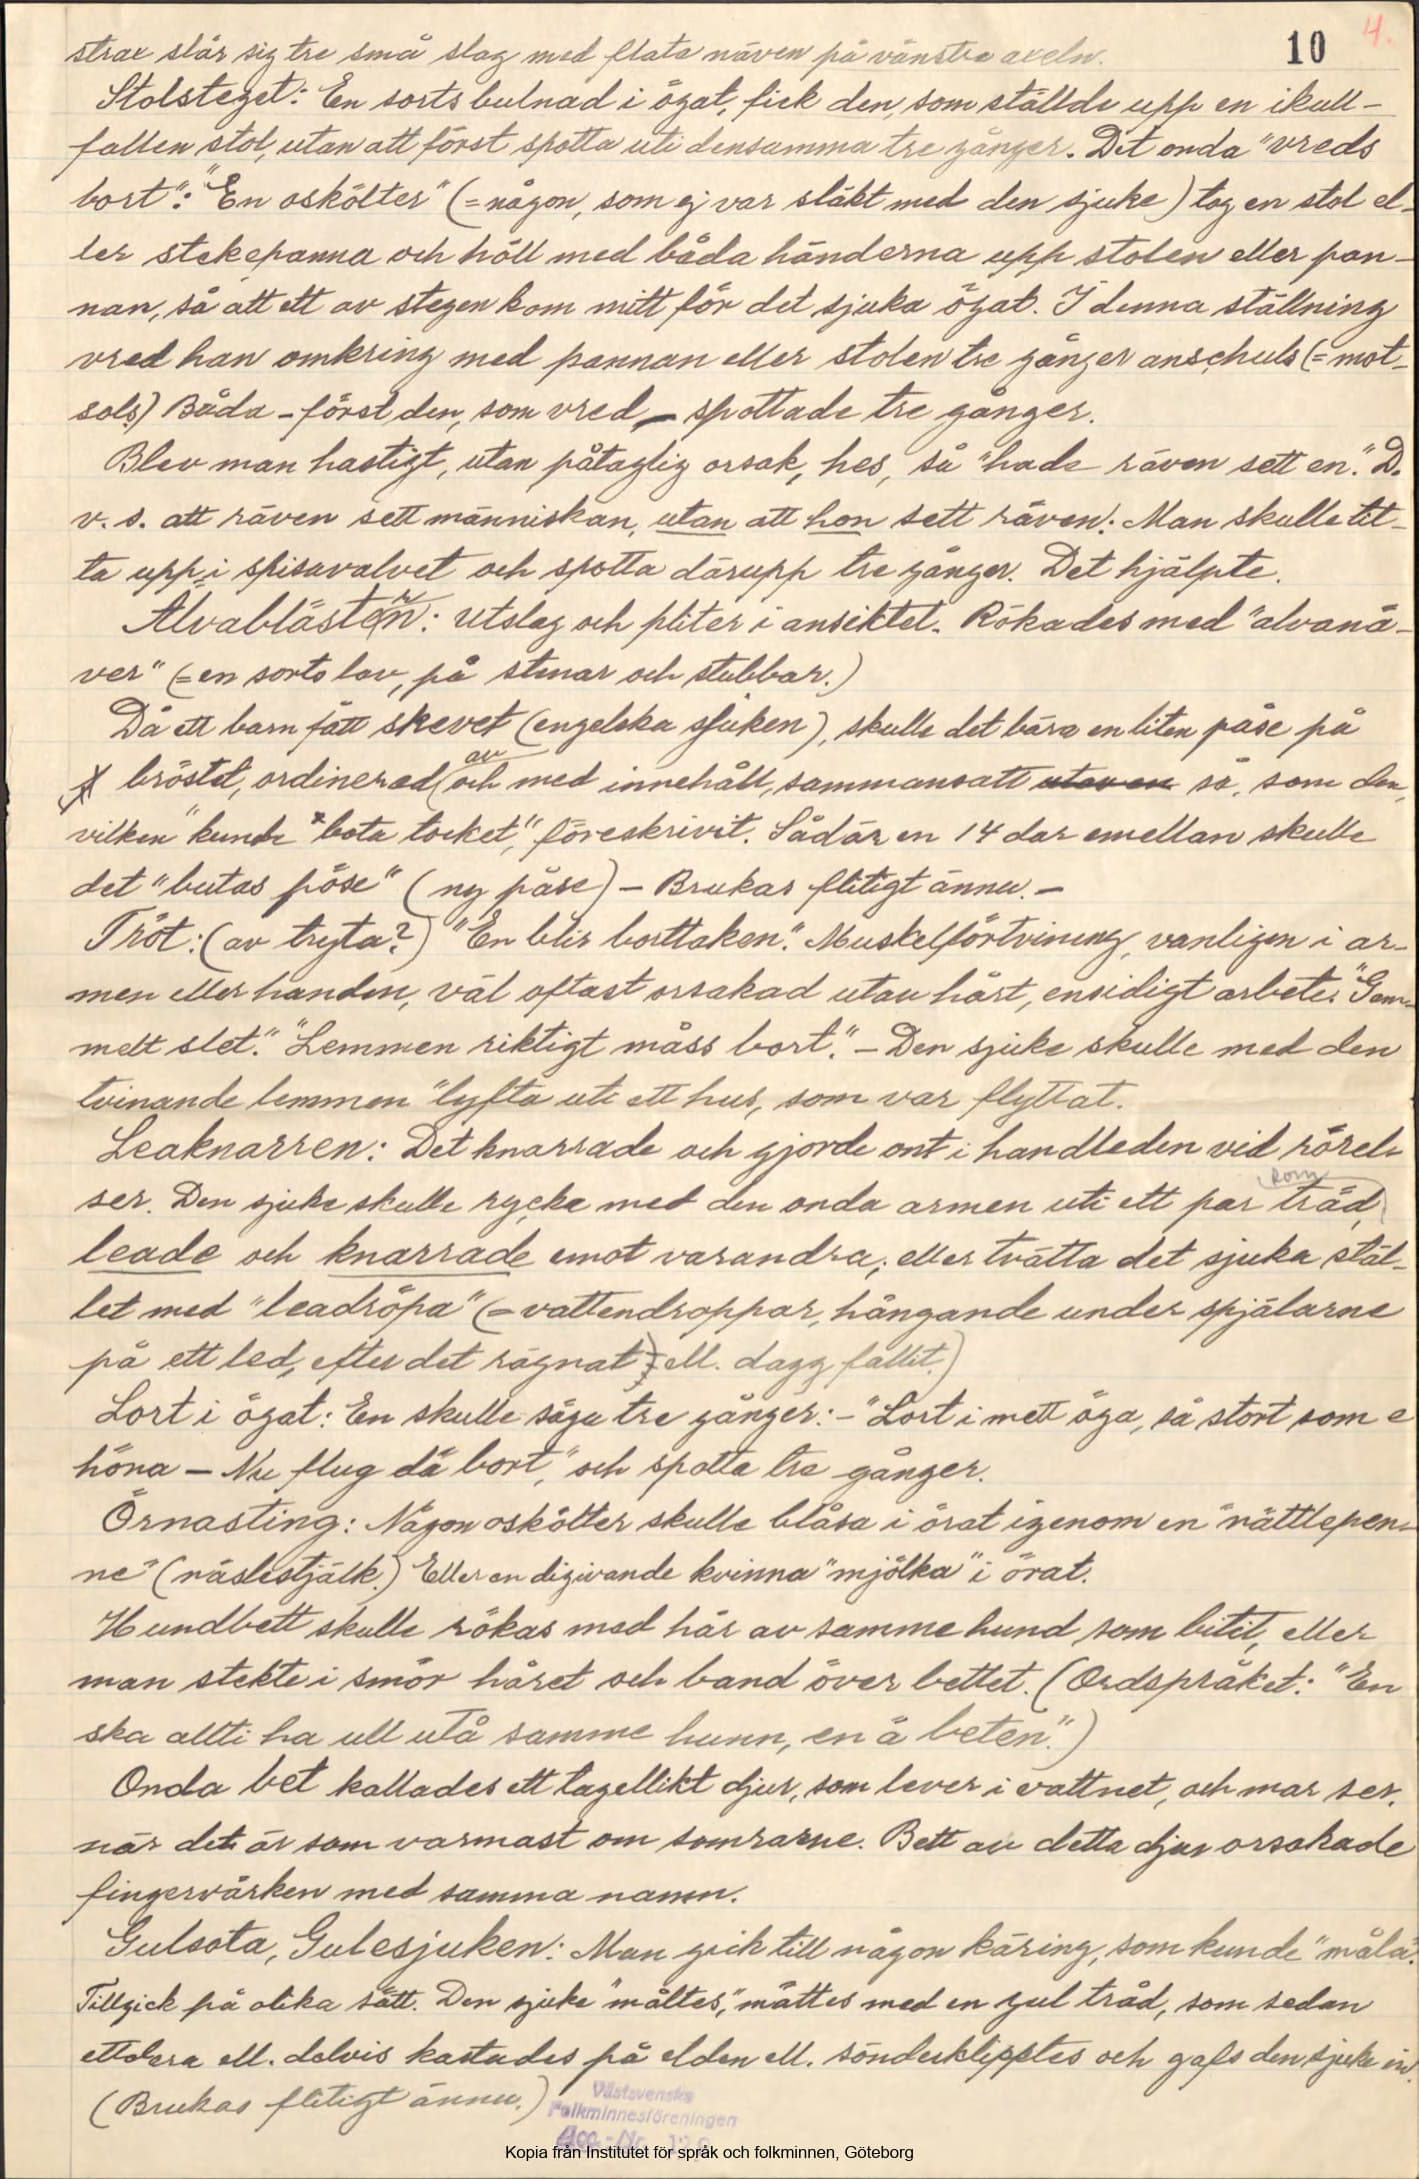 10 4.
strax slår sig tre små slag med flata näven på vänstra axeln.
Stolsteget: En sorts bulnad i ögat, fick den, som ställde upp en ikull-
fallen stol, utan att först spotta uti densamma tre gånger. Det onda "vreds
bort": "En oskölter" (= någon, som ej var släkt med den sjuke) tog en stol el-
ler stekepanna och höll med båda händerna upp stolen eller pan-
nan, så att ett av stegen kom mitt för det sjuka ögat. I denna ställning
vred han omkring med pannan eller stolen tre gånger anschuls (= mot-
sols) Båda - först den, som vred - spottade tre gånger.
Blev man hastigt, utan påtaglig orsak, hes, så "hade räven sett en". D.
v. s. att räven sett människan, utan att hon sett räven: Man skulle tit-
ta upp i spisavalvet och spotta därupp tre gånger. Det hjälpte.
Alvablästen: utslag och pliter i ansiktet. Rökades med "alvanä-
ver" (= en sorts lav, på stenar och stubbar.)
Då ett barn fått skevet (engelska sjuken), skulle det bära en liten påse på
bröstet, ordinerad av och med innehåll, sammansatt så, som den,
vilken "kunde bota tocket", föreskrivit. Sådär en 14 dar emellan skulle
det "butas pöse" (ny påse) - Brukas flitigt ännu. -
Tröt: (av tryta?) "En blir borttaken". Muskelförtvining, vanligen i ar-
men eller handen, väl oftast orsakad utav hårt, ensidigt arbete. "Gam-
melt slet". "Lemmen riktigt måss bort". - Den sjuke skulle med den
tvinande lemmen "lyfta uti ett hus, som var flyttat.
Leaknarren: Det knarrade och gjorde ont i handleden vid rörel-
ser. Den sjuke skulle rycka med den onda armen uti ett par träd, som
leade och knarrade emot varandra; eller tvätta det sjuka stäl-
let med "leadröpa" (= vattendroppar, hängande under spjälarne
på ett led, efter det rägnat ell. dagg fallit.)
Lort i ögat: En skulle säga tre gånger: - "Lort i mett öga, så stort som e
höna - Nu flug dä bort," och spotta tre gånger.
Örnasting: Någon oskölter skulle blåsa i örat igenom en "nättlepen-
ne" (näslestjälk.) Eller en digivande kvinna "mjölka" i örat.
Hundbett skulle rökas med hår av samme hund som bitit, eller
man stekte i smör håret och band över bettet. (Ordspråket: "En
ska allti ha ull utå samme hunn, en ä beten".)
Onda bet kallades ett tagellikt djur, som lever i vattnet, och mar ser,
när det är som varmast om somrarne. Bett av detta djur orsakade
fingervärken med samma namn.
Gulsota, Gulesjuken: Man gick till någon käring, som kunde "måla".
Tillgick på olika sätt. Den sjuke "måltes", mättes med en gul tråd, som sedan
ell. delvis kastades på elden ell. sönderklipptes och gafs den sjuke in.
(Brukas flitigt ännu.)
Västsvenska
Folkminnesföreningen
Acc-Nr
Kopia från Institutet för språk och folkminnen, Göteborg